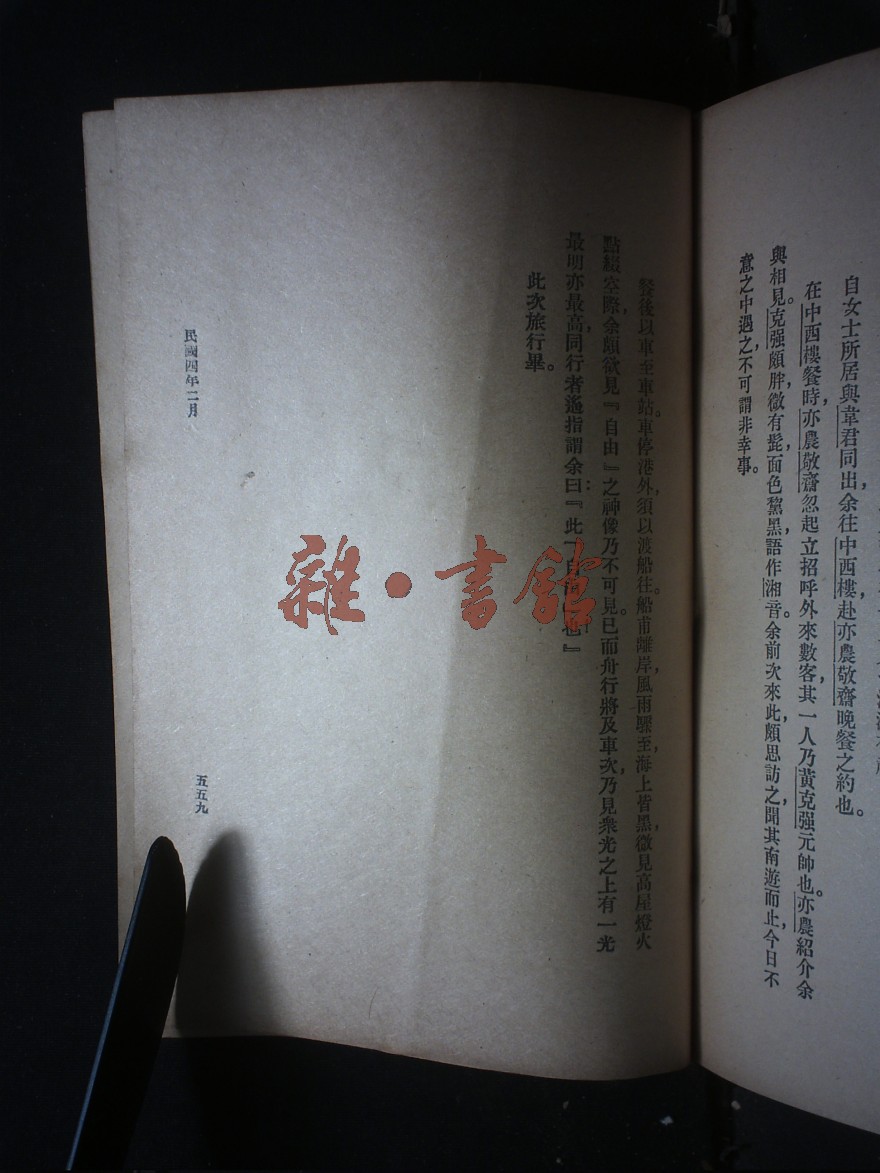 自女士所居與韋君同出，余往中西樓，赴亦農敬齋晚餐之約也。
在中西樓餐時，亦農敬齋忽起立招呼外來數客，其一人乃黃克強元帥也。亦農紹介余
與相見。克強頗胖，微有髭，面色黧黑，語作湘音。余前次來此，頗思訪之，聞其南遊而止，今日不
意之中遇之，不可謂非幸事。
餐後以車至車站。車停港外，須以渡船往。船甫離岸，風雨驟至，海上皆黑，微見高屋燈火
點綴空際，余頗欲見『自由』之神像乃不可見。已而舟行將及車次，乃見衆光之上有一光
最明亦最高，同行者遙指謂余曰：『此
也』
此次旅行畢。
民國四年二月
五五九
雜·書館